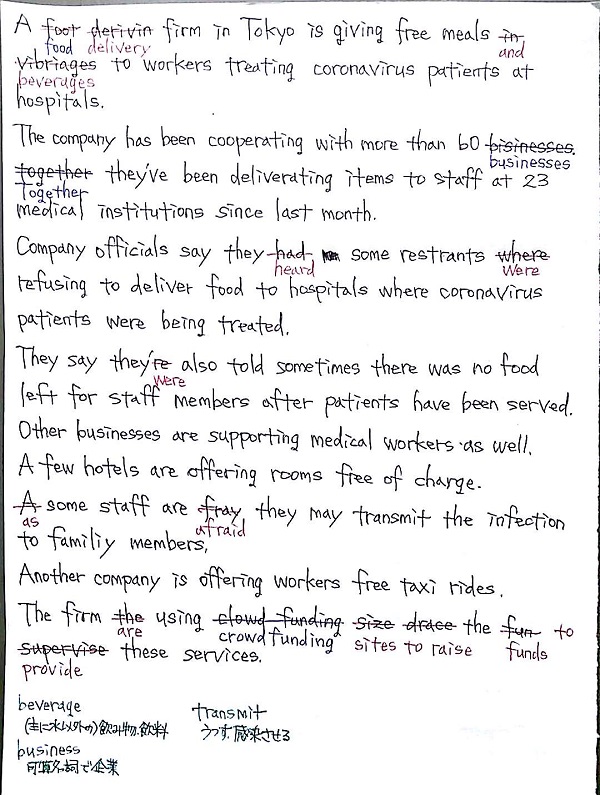 A foot derivin firm in Tokyo is giving free meals in
food delivery and
vibriages to workers treating coronavirus patients at
beverages
hospitals.
The company has been cooperating with more than 60 bisinesses.
businesses
together they've been deliverating items to staff at 23
Together
medical institutions since last month.
Company officials say they had some restrants where
heard were
refusing to deliver food to hospitals where coronavirus
patients were being treated.
They say they're also told sometimes there was no food
were
left for staff members after patients have been served.
Other businesses are supporting medical workers as well.
A few hotels are offering rooms free of charge.
A some staff are fray they may transmit the infection
as afraid
to familiy members,
Another company is offering workers free taxi rides.
The firm the using clowd funding size drace the fun to
are crowdfunding sites to raise funds
supervise these services.
provide
beverage transmit
(主に水以外の)飲み物.飲料 うつす.感染させる
business
可算名詞で企業